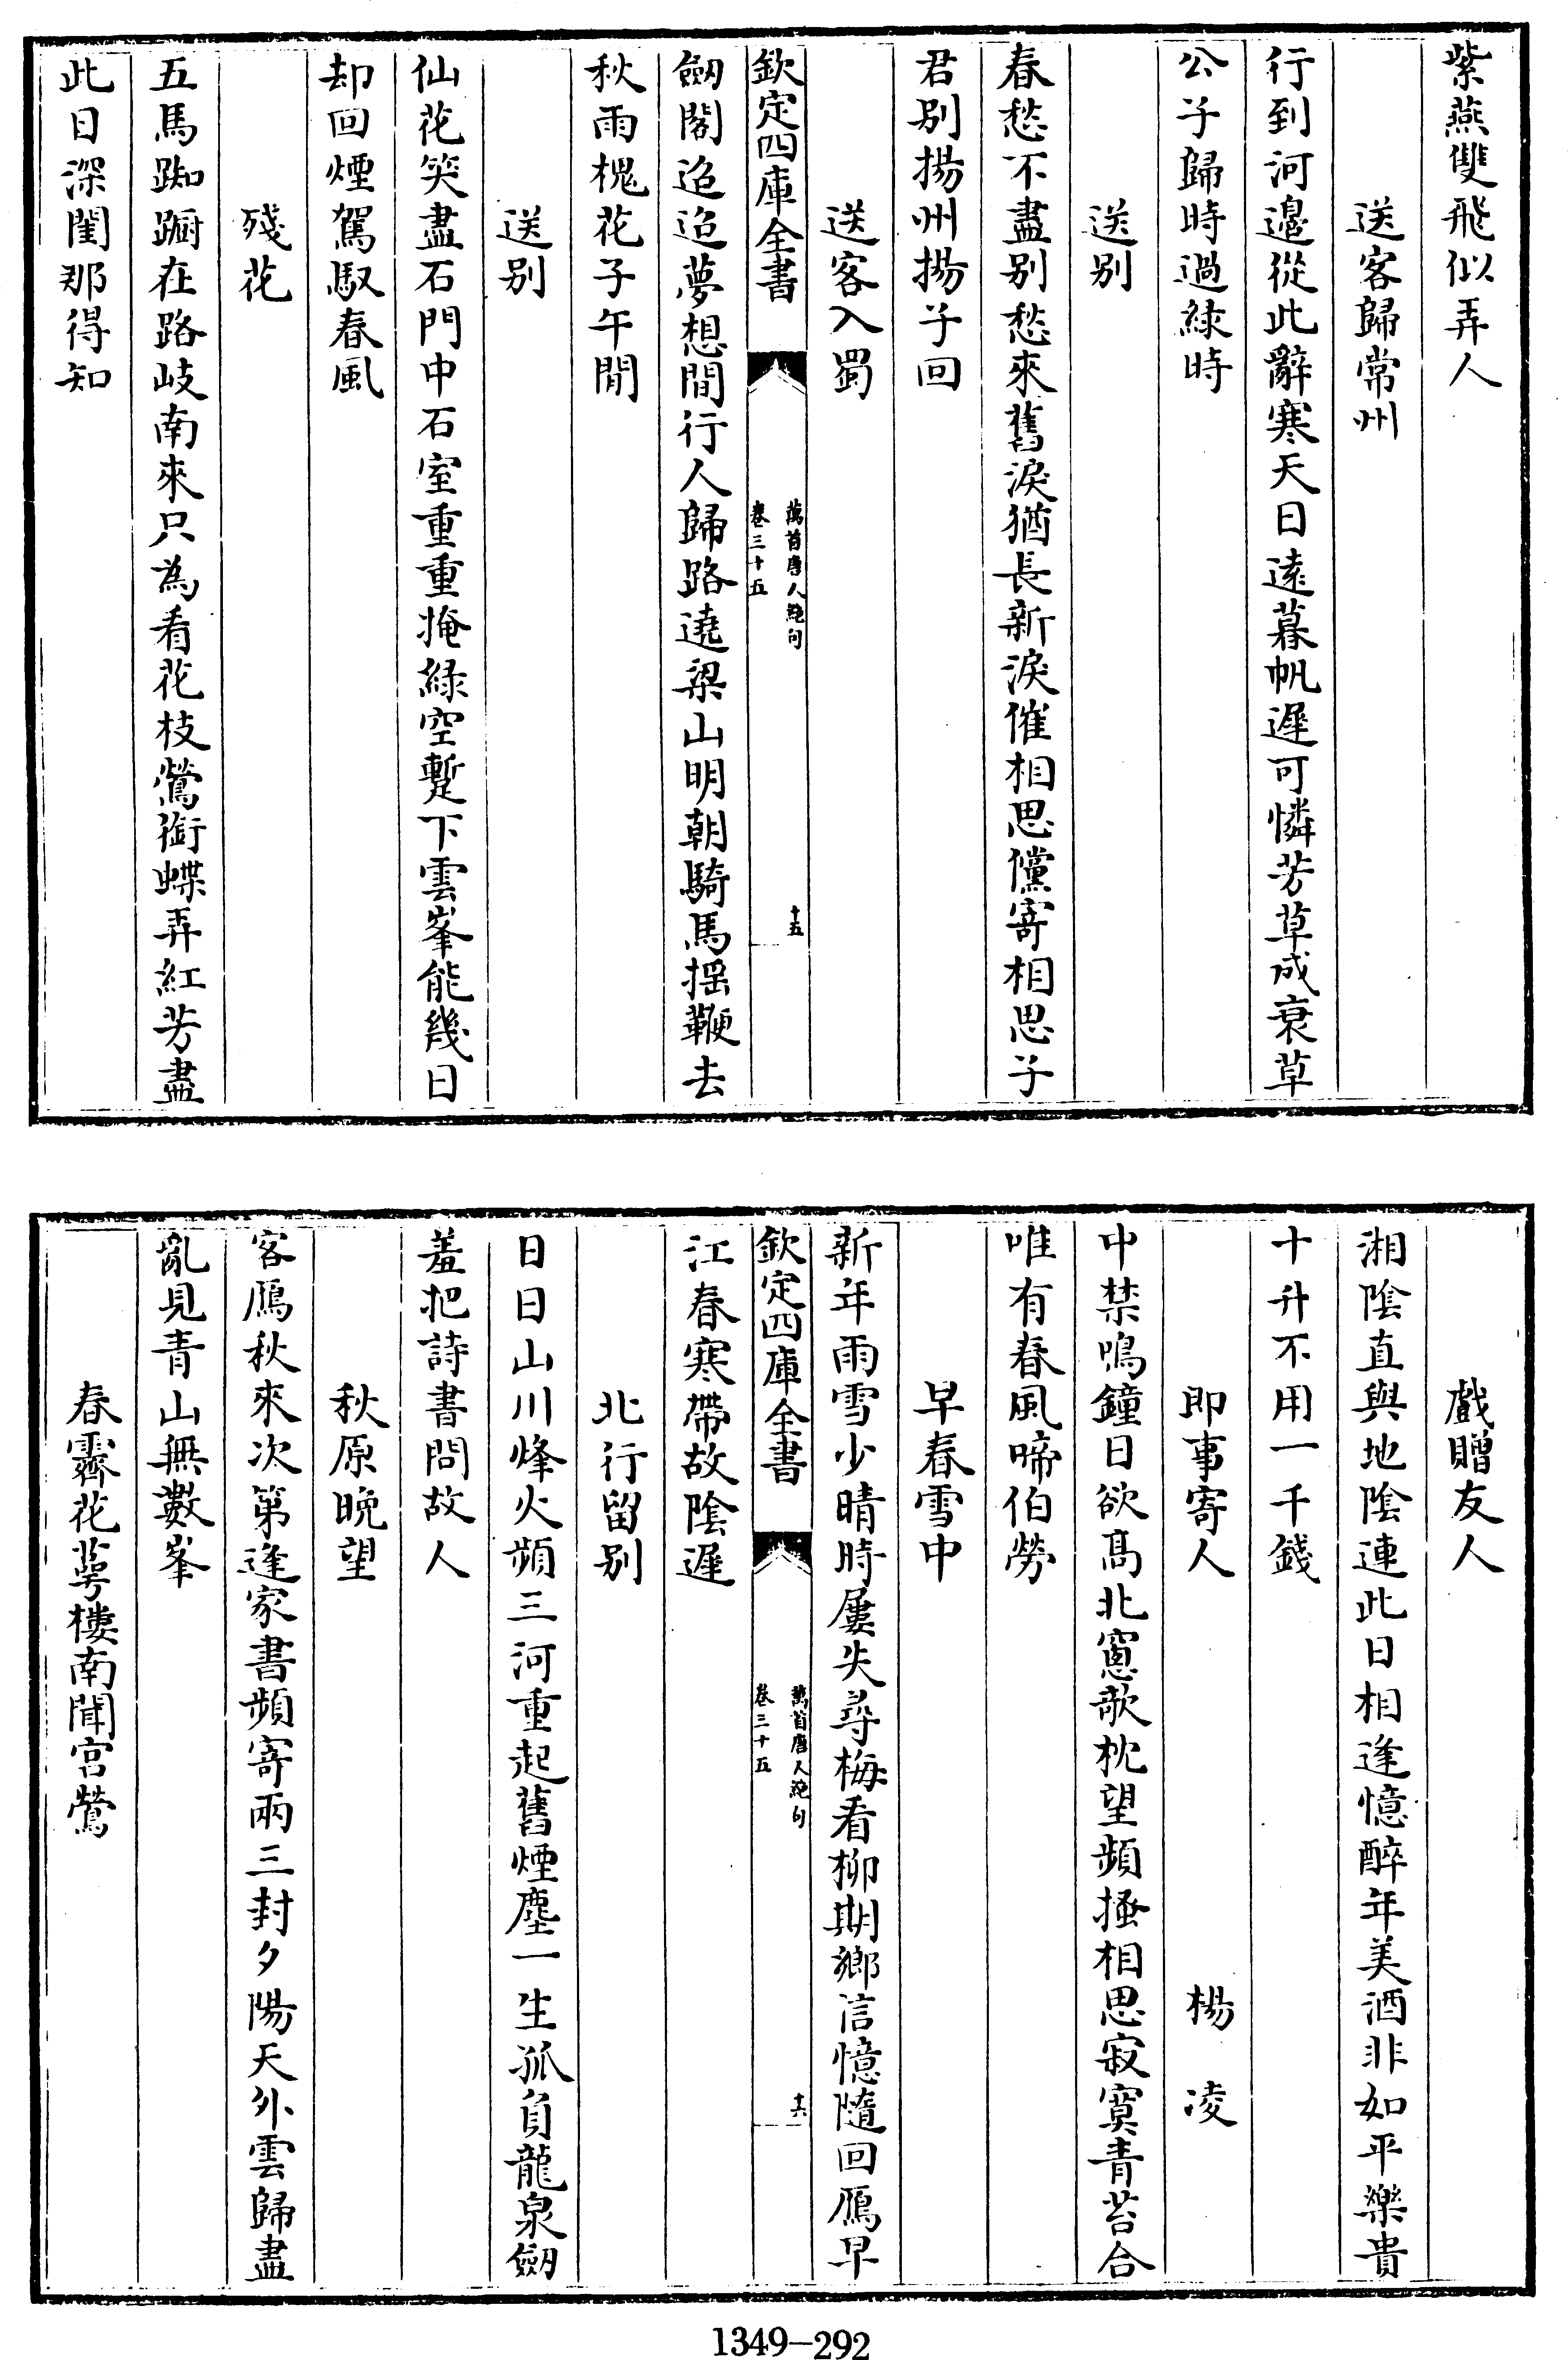 紫燕雙飛似弄人
送客歸常州
行到河邉從此辭寒天日逺暮帆遲可憐芳草成衰草
公子歸時過緑時
送别
春愁不盡别愁來舊淚猶長新淚催相思儻寄相思子
君别揚州揚子回
送客入蜀
欽定四庫全書
萬首唐人絶句
卷三十五
十五
劒閣迢迢夢想間行人歸路遶梁山明朝騎馬揺鞭去
秋雨槐花子午間
送别
仙花笑盡石門中石室重重掩緑空暫下雲峯能幾日
却回煙駕馭春風
殘花
五馬踟蹰在路岐南來只為看花枝鶯銜蝶弄紅芳盡
此日深閨那得知
戲贈友人
湘陰直與地陰連此日相逢憶醉年美酒非如平樂貴
十升不用一千錢
即事寄人 楊凌
中禁鳴鐘日欲髙北窻欹枕望頻搔相思寂寞青苔合
唯有春風啼伯勞
早春雪中
新年雨雪少晴時屢失尋梅看柳期鄉信憶隨回鴈早
欽定四庫全書
萬首唐人絶句
卷三十五
十六
江春寒帶故陰遲
北行留别
日日山川烽火頻三河重起舊煙塵一生孤負龍泉劒
羞把詩書問故人
秋原晚望
客鴈秋來次第逢家書頻寄兩三封夕陽天外雲歸盡
亂見青山無數峯
春霽花萼樓南聞宫鶯
1349-292